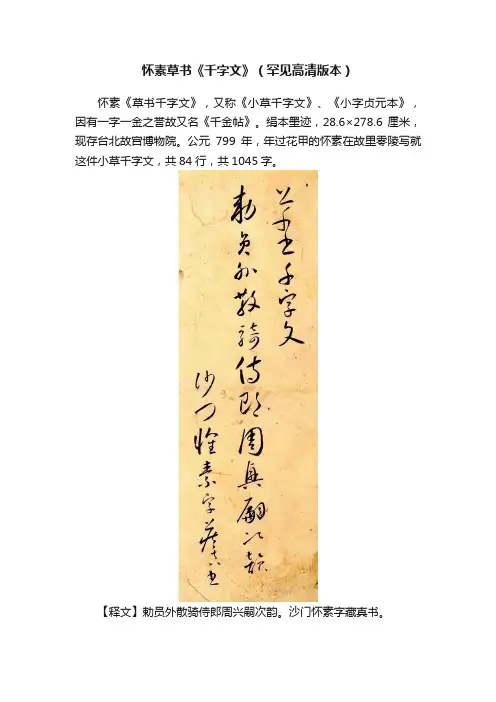 怀素草书《千字文》（罕见高清版本）
怀素《草书千字文》，又称《小草千字文》、《小字贞元本》，
因有一字一金之誉故又名《千金帖》。绢本墨迹，28.6×278.6厘米，
现存台北故宫博物院。公元799年，年过花甲的怀素在故里零陵写就
这件小草千字文，共84行，共1045字。
千字文
勅員外散騎侍郎周興嗣次韻
沙門懷素字藏真書
【释文】勅员外散骑侍郎周兴嗣次韵。沙门怀素字藏真书。